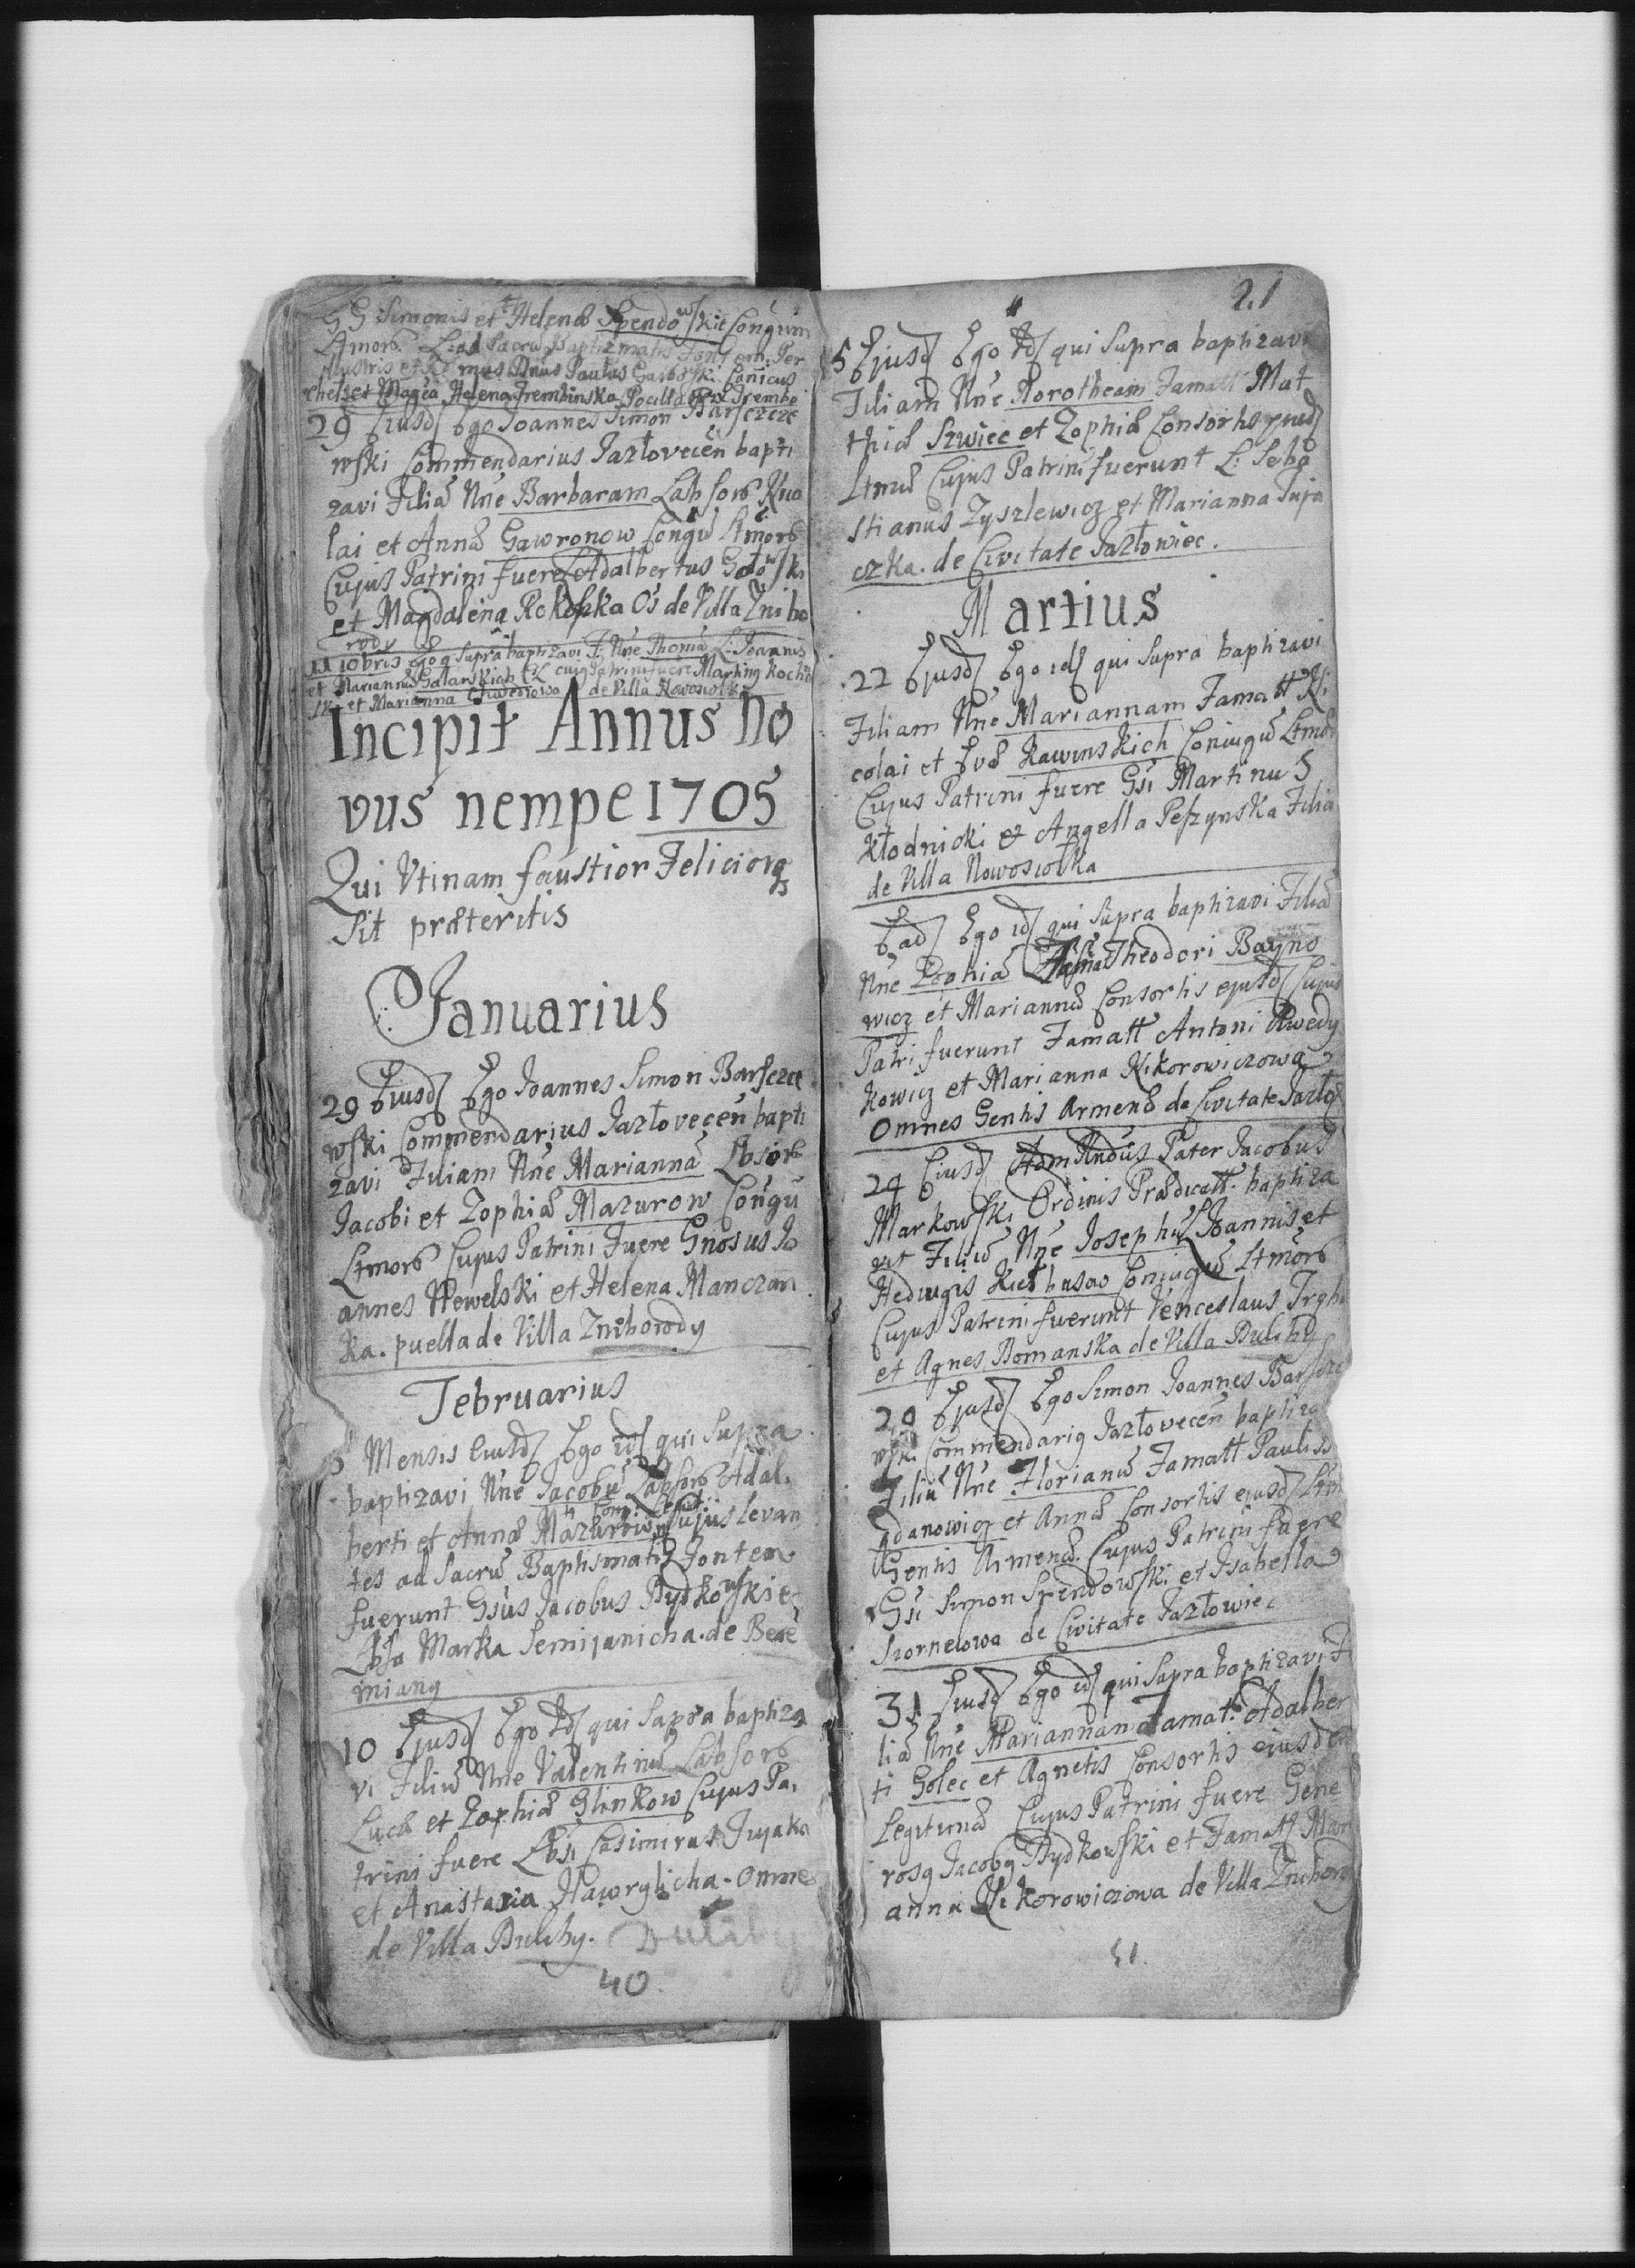 GG Simonis et Helenæ Spendowskie Congum
Ltmorb. L: ad Sacrū Baptizmatis Fontem Per
Illustris et Rdmus Dnus Paulus Canicus
et Helena Trembinska
29 Ejusd Ego Joannes Simon Barszcze
wski Commendarius Jazłovecen bapti
zavi Filiā Nne Barbaram Labsorb Nico
lai et Annæ Gawronow Congū Ltmorb
Cujus Patrini fuere Adalbertus Gołowski
et Magdalena Os de Villa Znibo
rody
11 10bris Ego q supra baptizavi F. Nne Thomā L: Joannis
et Mariannæ cuig Patrini fuere Marting
ski et Marianna de Villa Nowosiolka
Incipit Annus No
vus nempe 1705
Qui Utinam faustior Feliciorq
Sit præteritis
Januarius
29 Ejusd Ego Joannes Simon Barszcze
wski Commendarius Jazłovecen bapti
zavi Filiam Nne Mariannā Lbsorb
Jacobi et Zophiæ Mazurow Congū
Ltmorb Cujus Patrini Fuere Gnosus Jo
annes Newelski et Helena Manczan
ka. puella de Villa Zniborody
Februarius
Mensis Ejusd Ego id qui Supra
baptizavi Nne Jacobū Labsorb Adal.
berti et Annæ Mazurow Cujus Levan
tes ad Sacrū Baptismatis Fontem
fuerunt Gsus Jacobus Dydkowski et
Lbsa Marka Semijanicha. de Bere
miany
10 Ejusd Ego Id qui Supra baptiza
vi Filiū Nne Valentinū Labsorb
Lucæ et Zophiæ Glinkow Cujus Pa.
trini fuere Lbsi Casimirus Jujaka
et Anastazia Hawrylicha - omnes
de Villa Duliby. Duliby
40.
21
5 Ejusd Ego Id qui Supra baptizavi
Filiam Nne Dorotheam Famatt Mat
thiæ Szwiec et Zophiæ Consortis ejusd
Ltmæ Cujus Patrini fuerunt L: Seba
stianus Zyszlewicz et Marianna Juja
czka. de Civitate Jazłowiec.
Martius
22 Ejusd Ego id qui Supra baptizavi
Filiam Nne Mariannam Famatt Ni
colai et Evæ Rawinskich Coniugū Ltmor
Cujus Patrini fuere Gsi Martinus
Kłodnicki et Angella Peszynska Filia
de Villa Nowosiolka
Ead Ego id qui Supra baptizavi Filiā
Nne Zophiā Theodori Bagno
wicz et Mariannæ Consortis ejusd Cujus
Patri fuerunt Famatt Antoni Awedy
kowicz et Marianna Nikorowiczowa
Omnes Gentis Armenæ de Civitate Jazło
24 Ejusd Adm Rndus Pater Jacobus
Markowski Ordinis Prædicatt. baptiza
vit Filiū Nne Josephū Joannis et
Hedwigis Coniugū Ltmorb
Cujus Patrini fuerunt Venceslaus
et Agnes Domanska de Villa Duliby
29 Ejusd Ego Simon Joannes Barszcze
wski Commendariq Jazłovecen baptiza
Filiū Nne Florianū Famatt Pauli
danowicz et Annæ Consortis ejusd Ltm
Gentis Armenæ. Cujus Patrini fuere
Gsi Simon Spendowski et Isabella
Kornelowa de Civitate Jazłowiec
31 Ejusd Ego id qui Supra baptizavi F
liā Nne Mariannam Famat. Adalber
ti Golec et Agnetis Consortis ejusdem
Legitimæ Cujus Patrini fuere Gene
rosq Jacobq Dydkowski et Famatt Mari
anna Nikorowiczowa de Villa Zniborody
41.